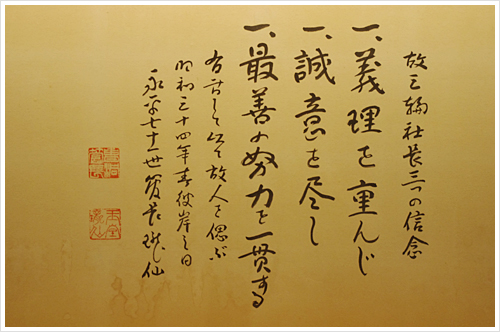 故三輪社長三つの信念
一、義理を重んじ
一、誠意を尽し
一、最善の努力を一貫する
右誌して以て故人を偲ぶ
昭和三十四年春彼岸之日
永平七十一世管長瓏仙